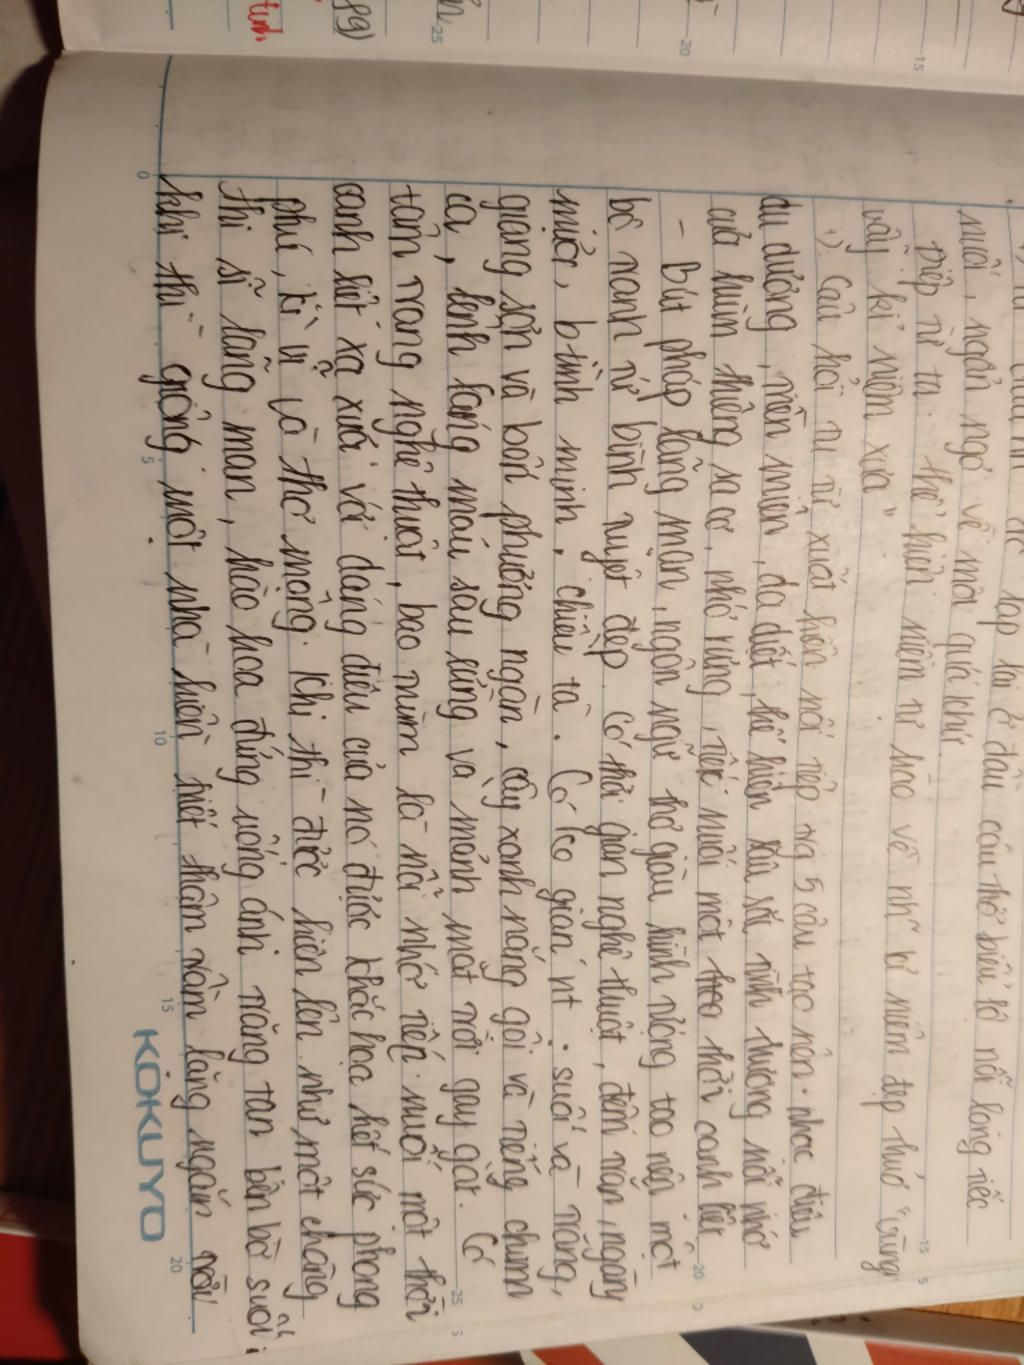 lặp lại ở đầu câu thơ biểu lộ nỗi lòng tiếc
nuối, ngẩn ngơ về một quá khứ
Điệp từ ta: thể hiện niềm tự hào về những kỉ niệm đẹp thuở "vùng
vẫy kỉ niệm xưa"
Câu hỏi tu từ xuất hiện nối tiếp trg 5 câu tạo nên nhạc điệu
du dương, triền miên, da diết, thể hiện sâu sắc tình thương nỗi nhớ
của hùm thiêng sa cơ, nhớ rừng, tiếc nuối một thời oanh liệt
- Bút pháp lãng mạn, ngôn ngữ thơ giàu hình tượng tạo nên một
bộ tranh tứ bình tuyệt đẹp. Có thời gian nghệ thuật, đêm trăn, ngày
mưa, bình minh, chiều tà. Có ko gian nt. suối và trăng,
giang sơn và bốn phương ngàn, cây xanh nắng gội và tiếng chim
ca, lênh láng máu sau rừng và mảnh mặt trời gay gắt. Có
tâm trạng nghệ thuật, bao trùm là nỗi nhớ tiếc nuối một thời
oanh liệt xa xưa với dáng điệu của nó được khắc họa hết sức phong
phú, kì vĩ và thơ mộng. Khi thì được hiện lên như một chàng
thi sĩ lãng mạn, hào hoa đứng uống ánh trăng tan bên bờ suối.
khi thì giống một nhà hiền triết thâm trầm lặng ngắm
KOKUYO
0
5
10
15
20
25
20
15
25
20
15
5